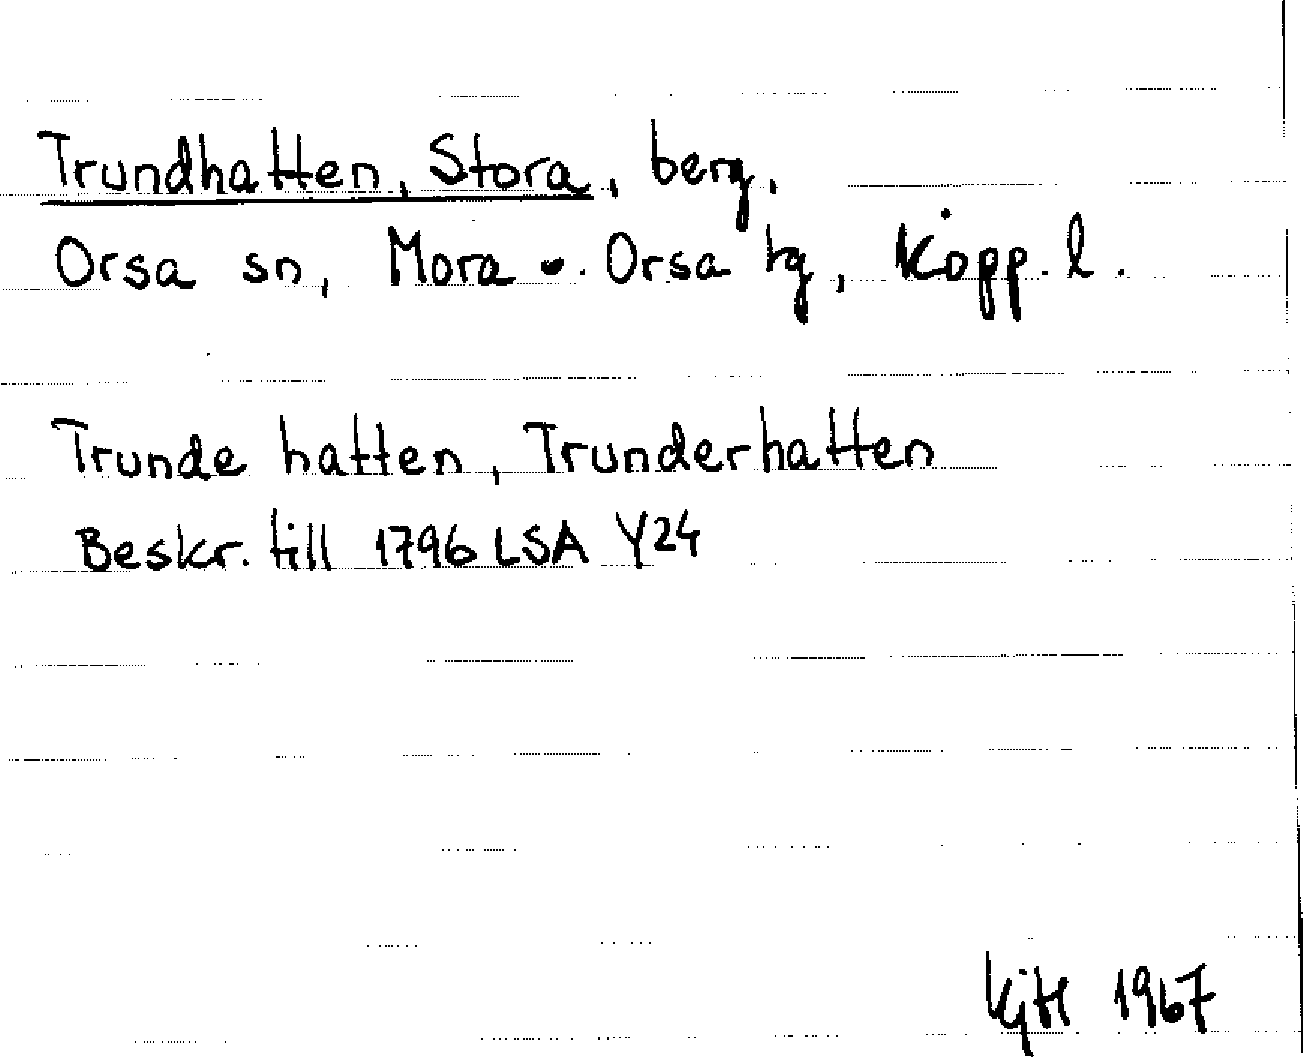 Trundhatten, Stora, berg,
Orsa sn, Mora o. Orsa tg, Kopp. l.
Trunde hatten, Trunderhatten
Beskr. till 1796 LSA Y24
KjH 1967